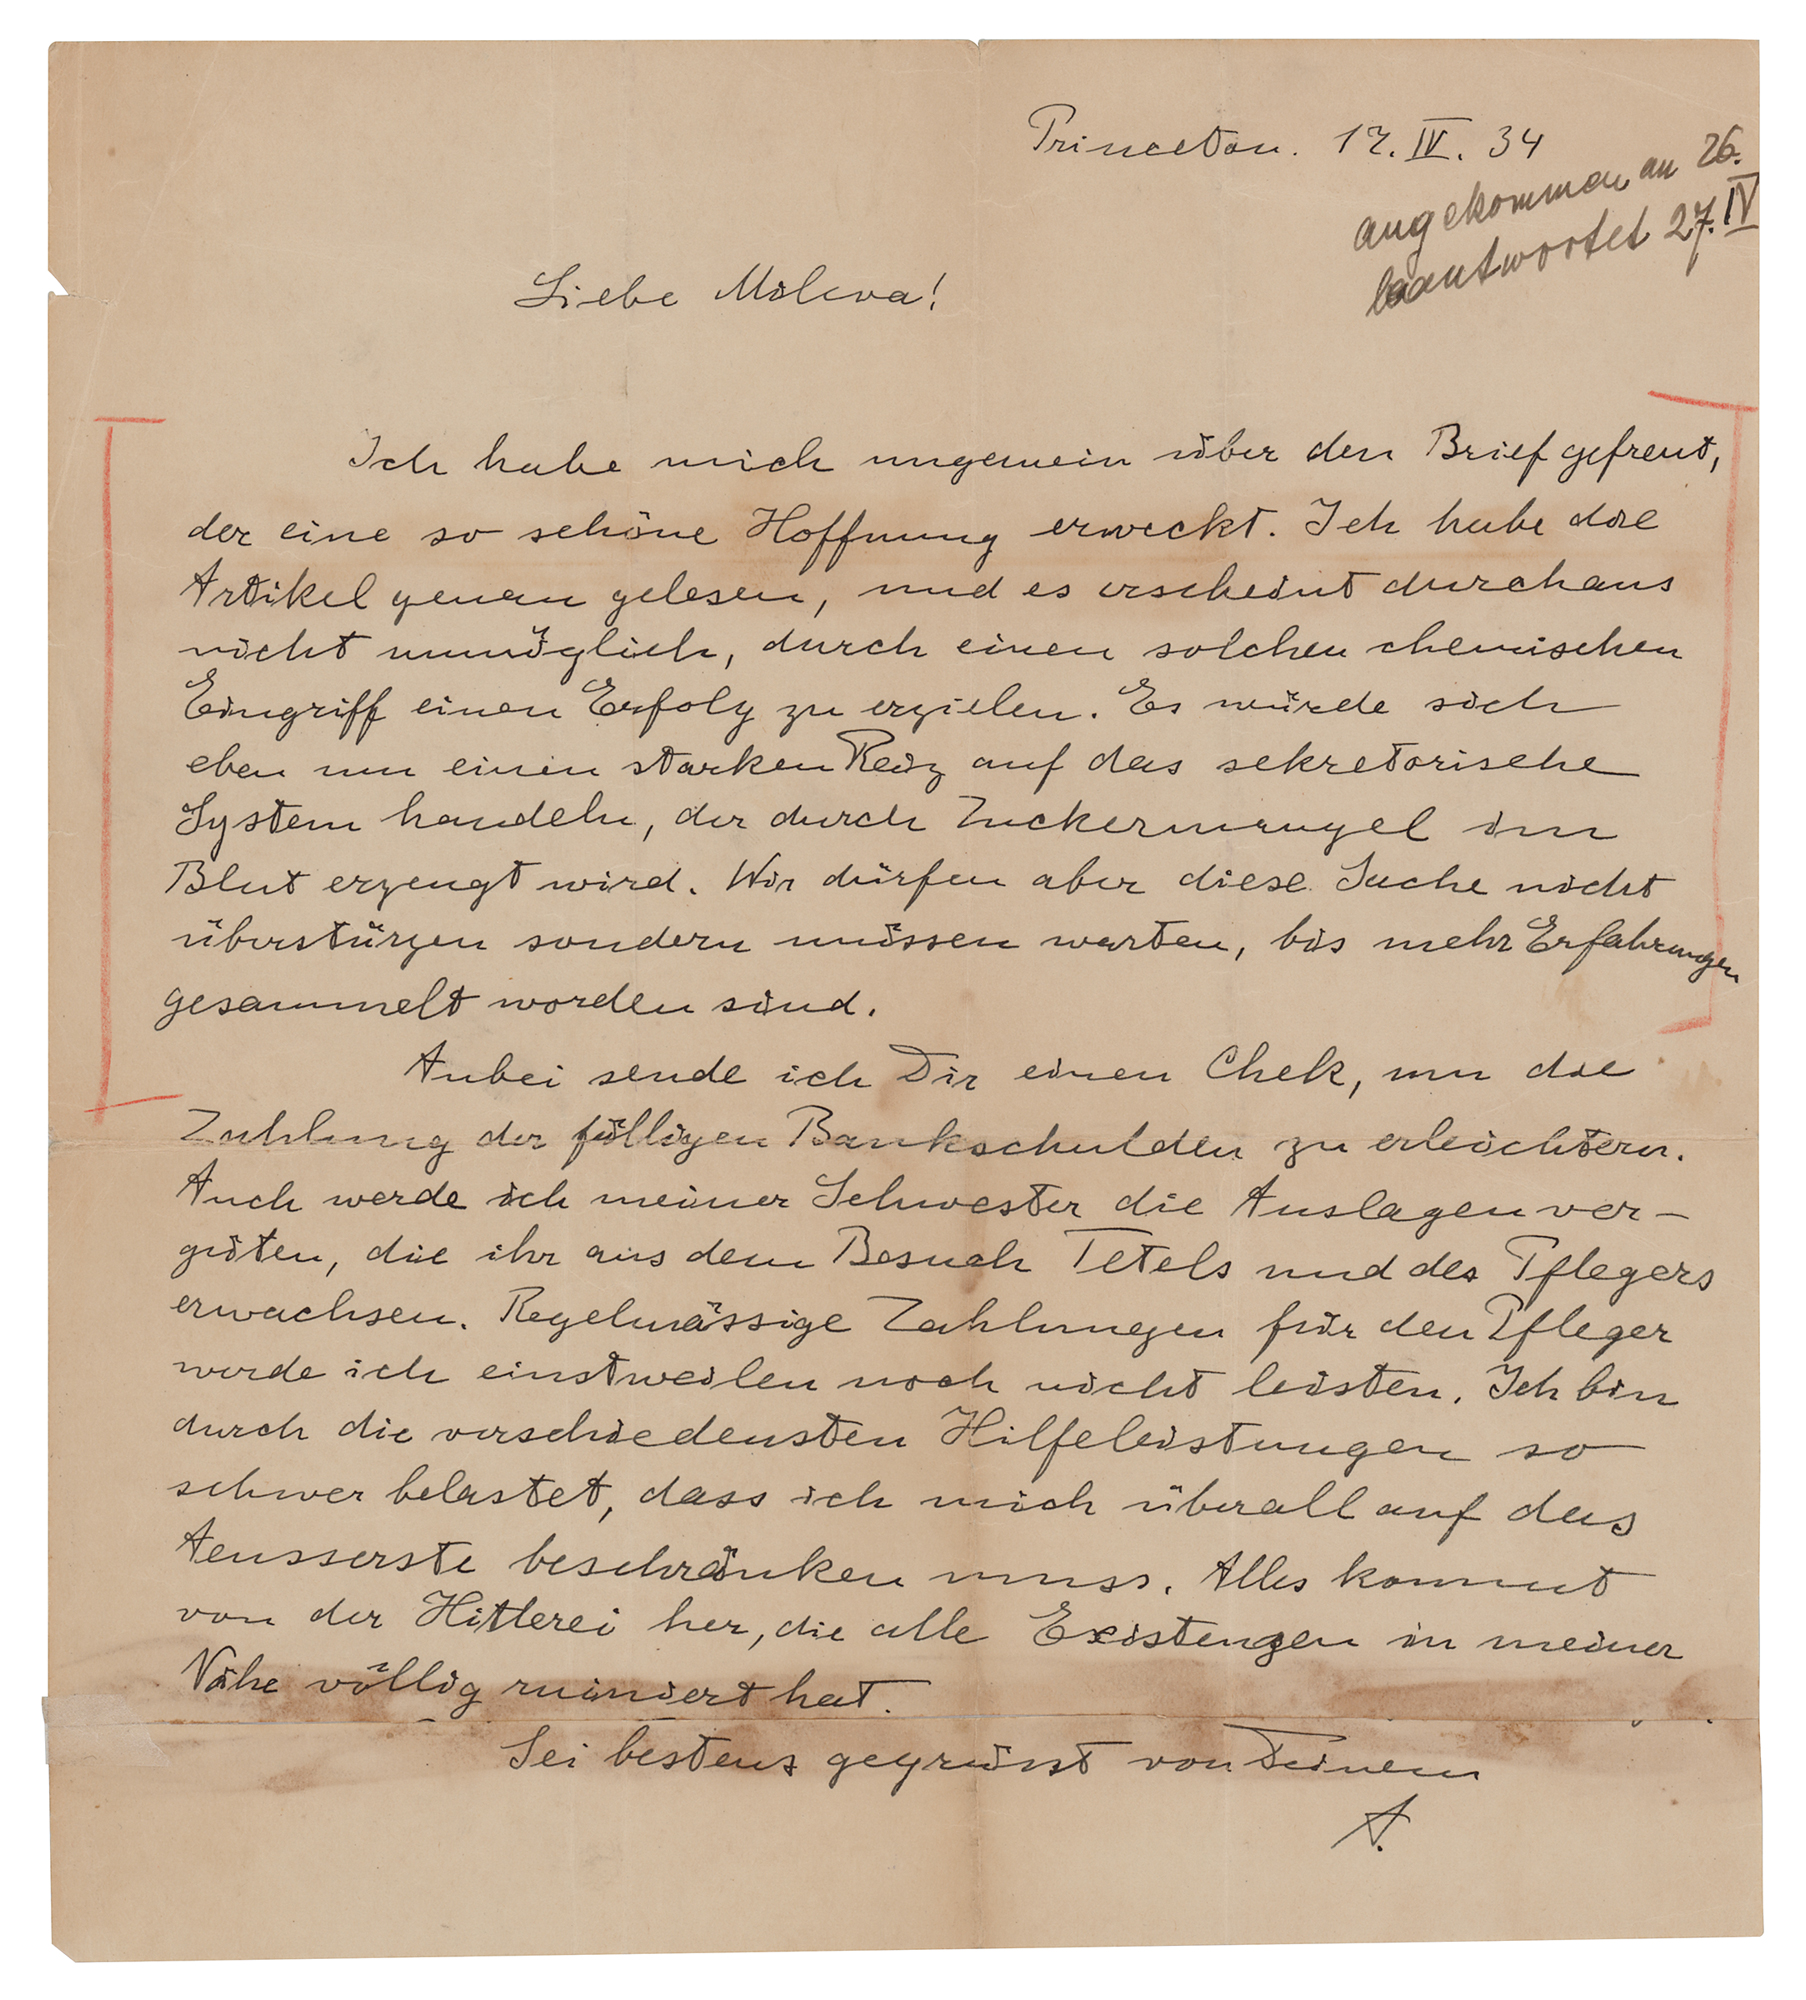 Princeton. 17. IV. 34
angekommen am 26.
beantwortet 27. IV
Liebe Mileva!
Ich habe mich ungemein über den Brief gefreut,
der eine so schöne Hoffnung erweckt. Ich habe die
Artikel genau gelesen, und es erscheint durchaus
nicht unmöglich, durch einen solchen chemischen
Eingriff einen Erfolg zu erzielen. Es würde sich
eben um einen starken Reiz auf das sekretorische
System handeln, der durch Zuckermangel im
Blut erzeugt wird. Wir dürfen aber diese Sache nicht
überstürzen sondern müssen warten, bis mehr Erfahrungen
gesammelt worden sind.
Anbei sende ich Dir einen Chek, um die
Zahlung der fälligen Bankschulden zu erleichtern.
Auch werde ich meiner Schwester die Auslagen ver-
güten, die ihr aus dem Besuch Tetels und des Pflegers
erwachsen. Regelmässige Zahlungen für den Pfleger
werde ich einstweilen noch nicht leisten. Ich bin
durch die verschiedensten Hilfeleistungen so
schwer belastet, dass ich mich überall auf das
Aeusserste beschränken muss. Alles kommt
von der Hitlerei her, die alle Existenzen in meiner
Nähe völlig ruiniert hat.
Sei bestens gegrüsst von Deinem
A.